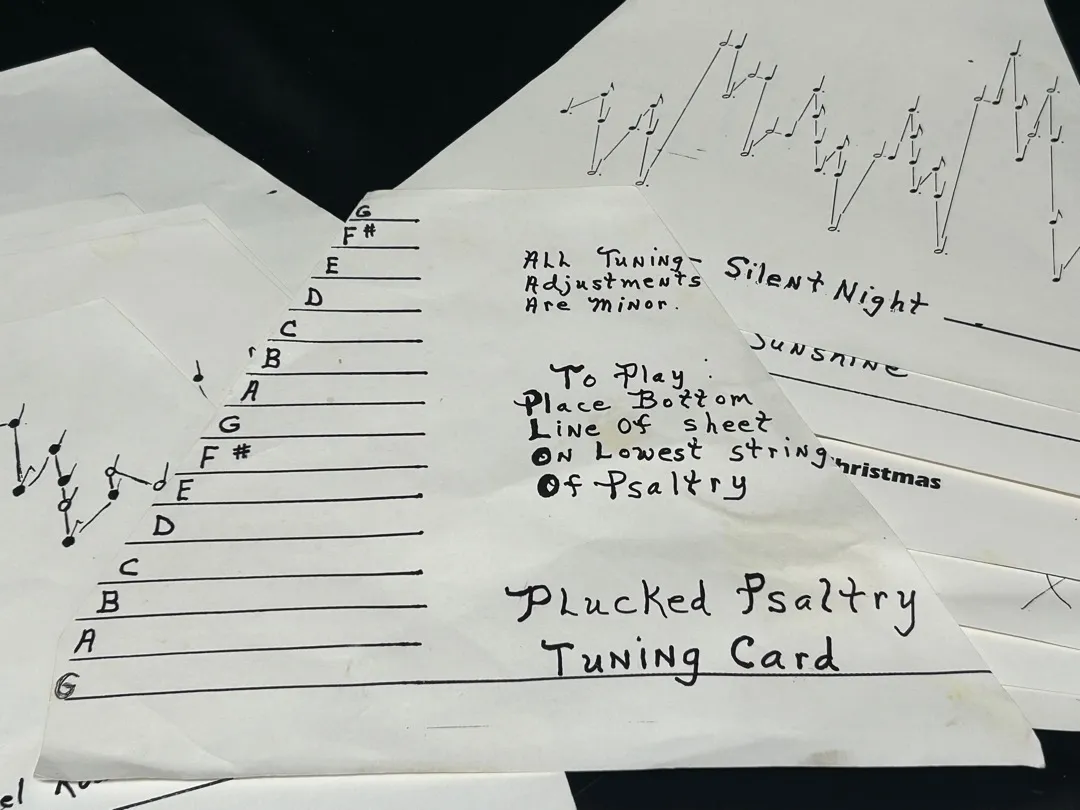 G
F#
E
D
C
B
A
G
F#
E
D
C
B
A
G
ALL TUNING-
Adjustments
Are MINOR.
To Play :
Place Bottom
LINE OF sheet
ON Lowest string
Of Psaltry
PLucked Psaltry
TUNING Card
SILENT NIGHT
SUNSHINE
hristmas
el